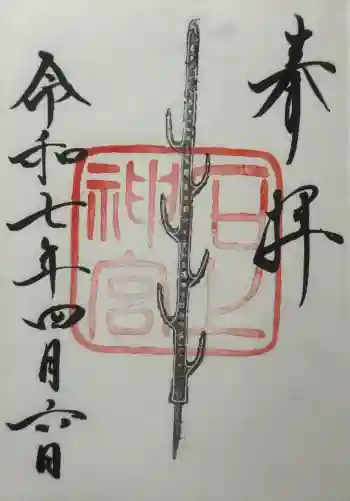 奉拝
石上神宮
令和七年四月六日